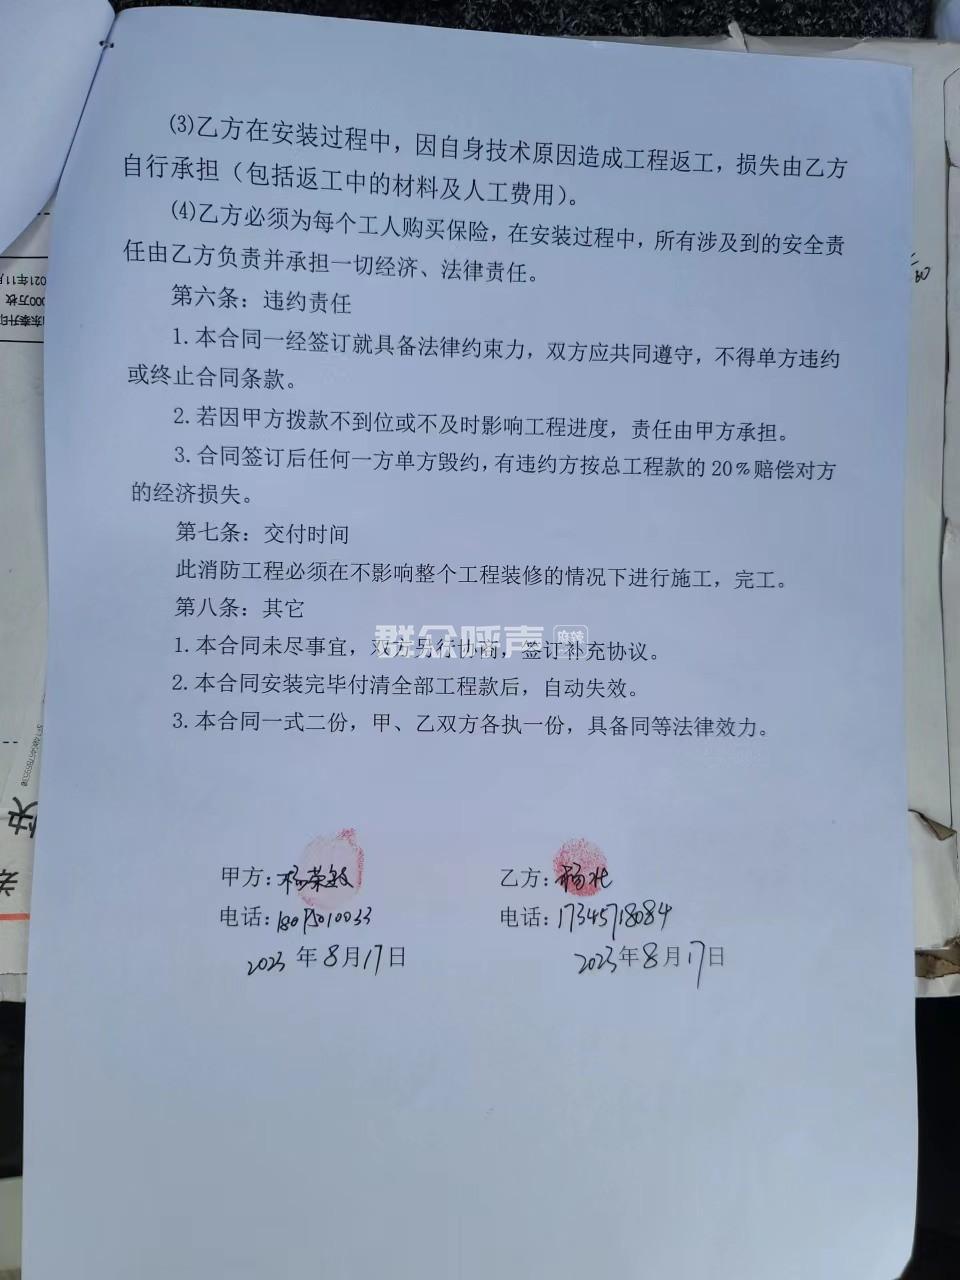 (3)乙方在安装过程中，因自身技术原因造成工程返工，损失由乙方
自行承担（包括返工中的材料及人工费用）。
(4)乙方必须为每个工人购买保险，在安装过程中，所有涉及到的安全责
任由乙方负责并承担一切经济、法律责任。
第六条：违约责任
1.本合同一经签订就具备法律约束力，双方应共同遵守，不得单方违约
或终止合同条款。
2.若因甲方拨款不到位或不及时影响工程进度，责任由甲方承担。
3.合同签订后任何一方单方毁约，有违约方按总工程款的20%赔偿对方
的经济损失。
第七条：交付时间
此消防工程必须在不影响整个工程装修的情况下进行施工，完工。
第八条：其它
群众呼声
1.本合同未尽事宜，双方另行协商，签订补充协议。
2.本合同安装完毕付清全部工程款后，自动失效。
3.本合同一式二份，甲、乙双方各执一份，具备同等法律效力。
甲方：杨荣敏
乙方：杨
电话：
电话：17345718084
2023年8月17日
2023年8月17日